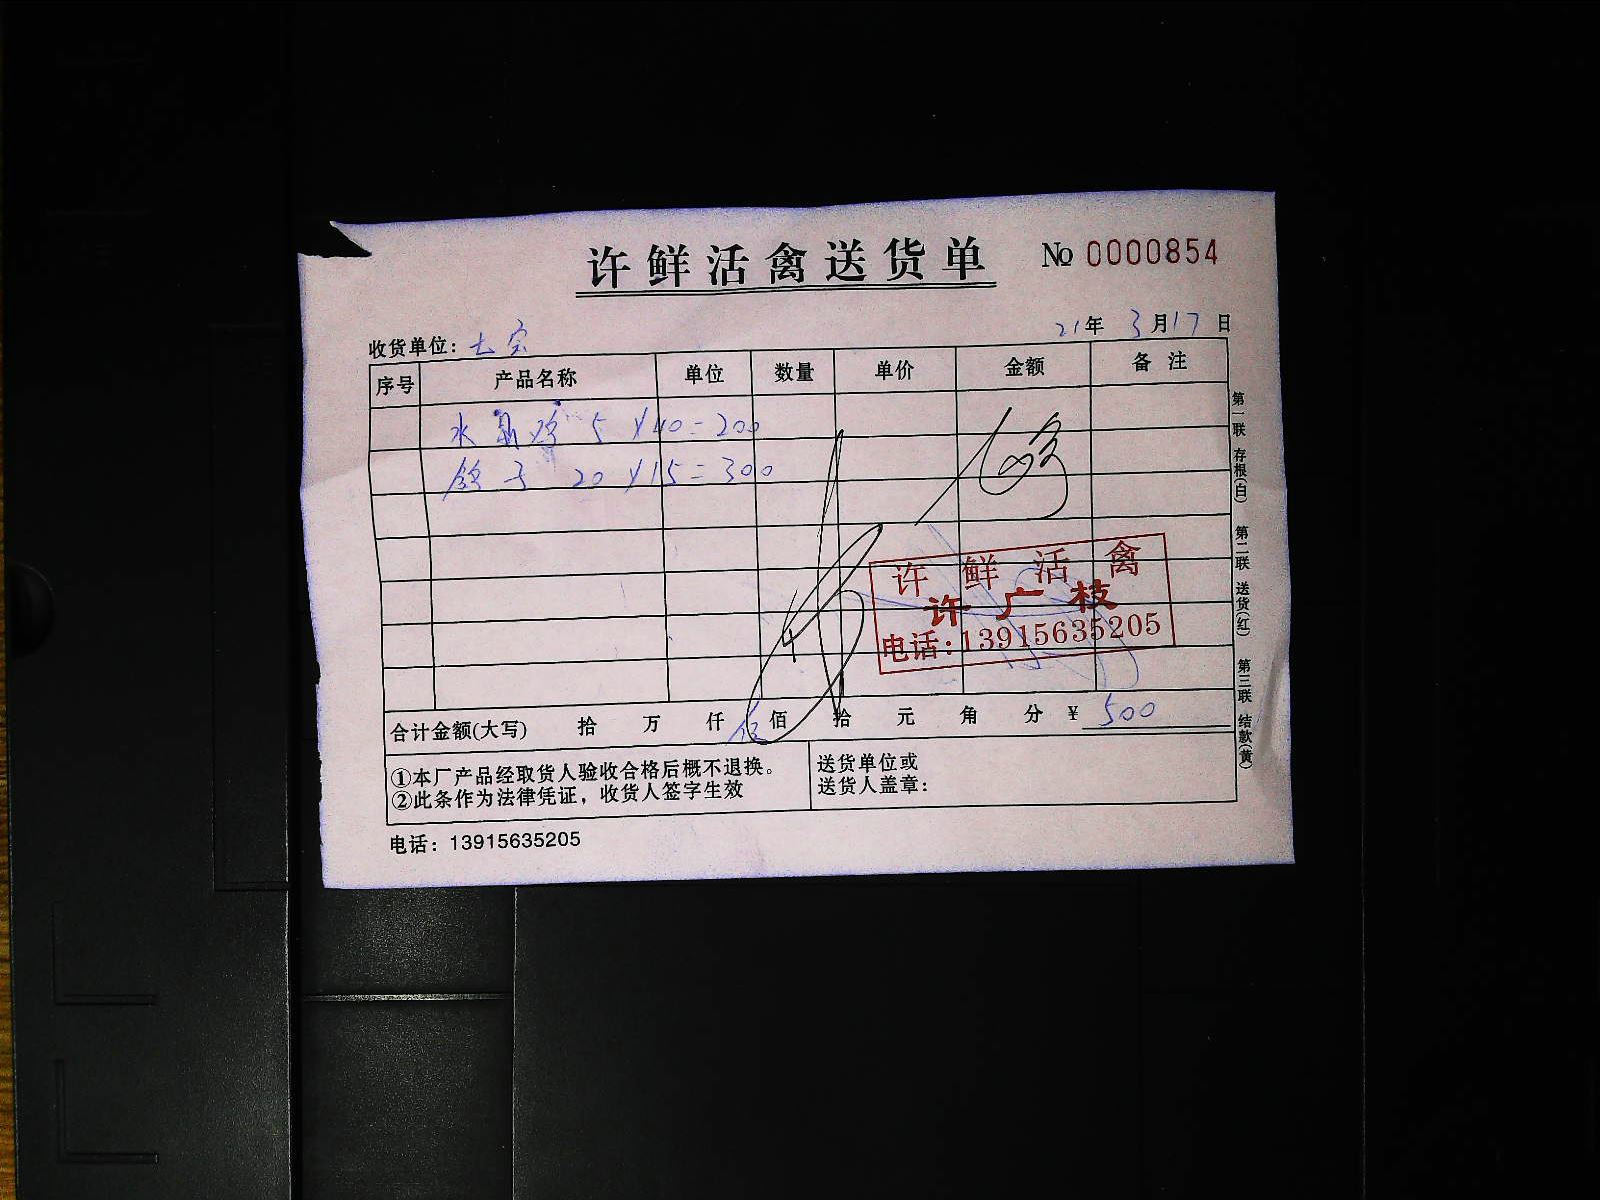 许鲜活禽送货单 № 0000854
收货单位：七宝 21年 3月17日
序号 产品名称 单位 数量 单价 金额 备注
水 鸡 5 × 40 = 200
鸽子 20 × 15 = 300
许鲜活禽
许广枝
电话：13915635205
合计金额(大写) 拾 万 仟 伍佰 拾 元 角 分 ¥ 500
①本厂产品经取货人验收合格后概不退换。
②此条作为法律凭证，收货人签字生效
送货单位或
送货人盖章：
电话：13915635205
第一联 存根(白) 第二联 送货(红) 第三联 结款(黄)